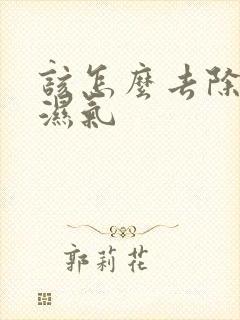 該怎麼去除
濕氣
郭莉花